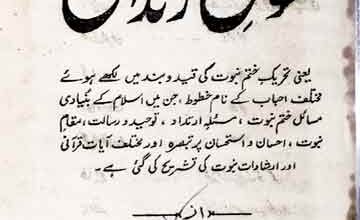 یعنی تحریک ختم نبوت کی قید و بند میں لکھے ہوئے
مختلف احباب کے نام خطوط، جن میں اسلام کے بنیادی
مسائل ختم نبوت، مسئلہ ارتداد، توحید و رسالت، مقامِ
نبوت، احسان و استحسان پر تبصرہ اور مختلف آیات قرآنی
اور ارشادات نبوت کی تشریح کی گئی ہے۔
از